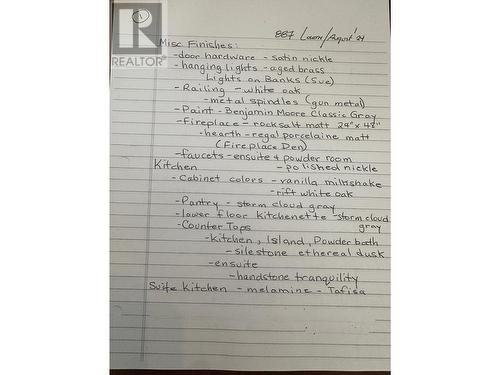 1
887 Lawn/August '24
REALTOR®
Misc Finishes:
-door hardware - satin nickle
-hanging lights - aged brass
Lights on Banks (Sue)
-Railing - white oak
-metal spindles (gun metal)
-Paint - Benjamin Moore Classic Gray
-Fireplace - rocksalt matt 24"x48"
-hearth - regal porcelaine matt
(Fireplace Den)
-faucets - ensuite & powder room
- polished nickle
Kitchen
-Cabinet colors - vanilla milkshake
-rift white oak
-Pantry - storm cloud gray
-lower floor kitchenette - storm cloud
gray
-Counter Tops
-kitchen, Island, Powder bath
- silestone ethereal dusk
-ensuite
-handstone tranquility
Suite Kitchen - melamine - Tafisa